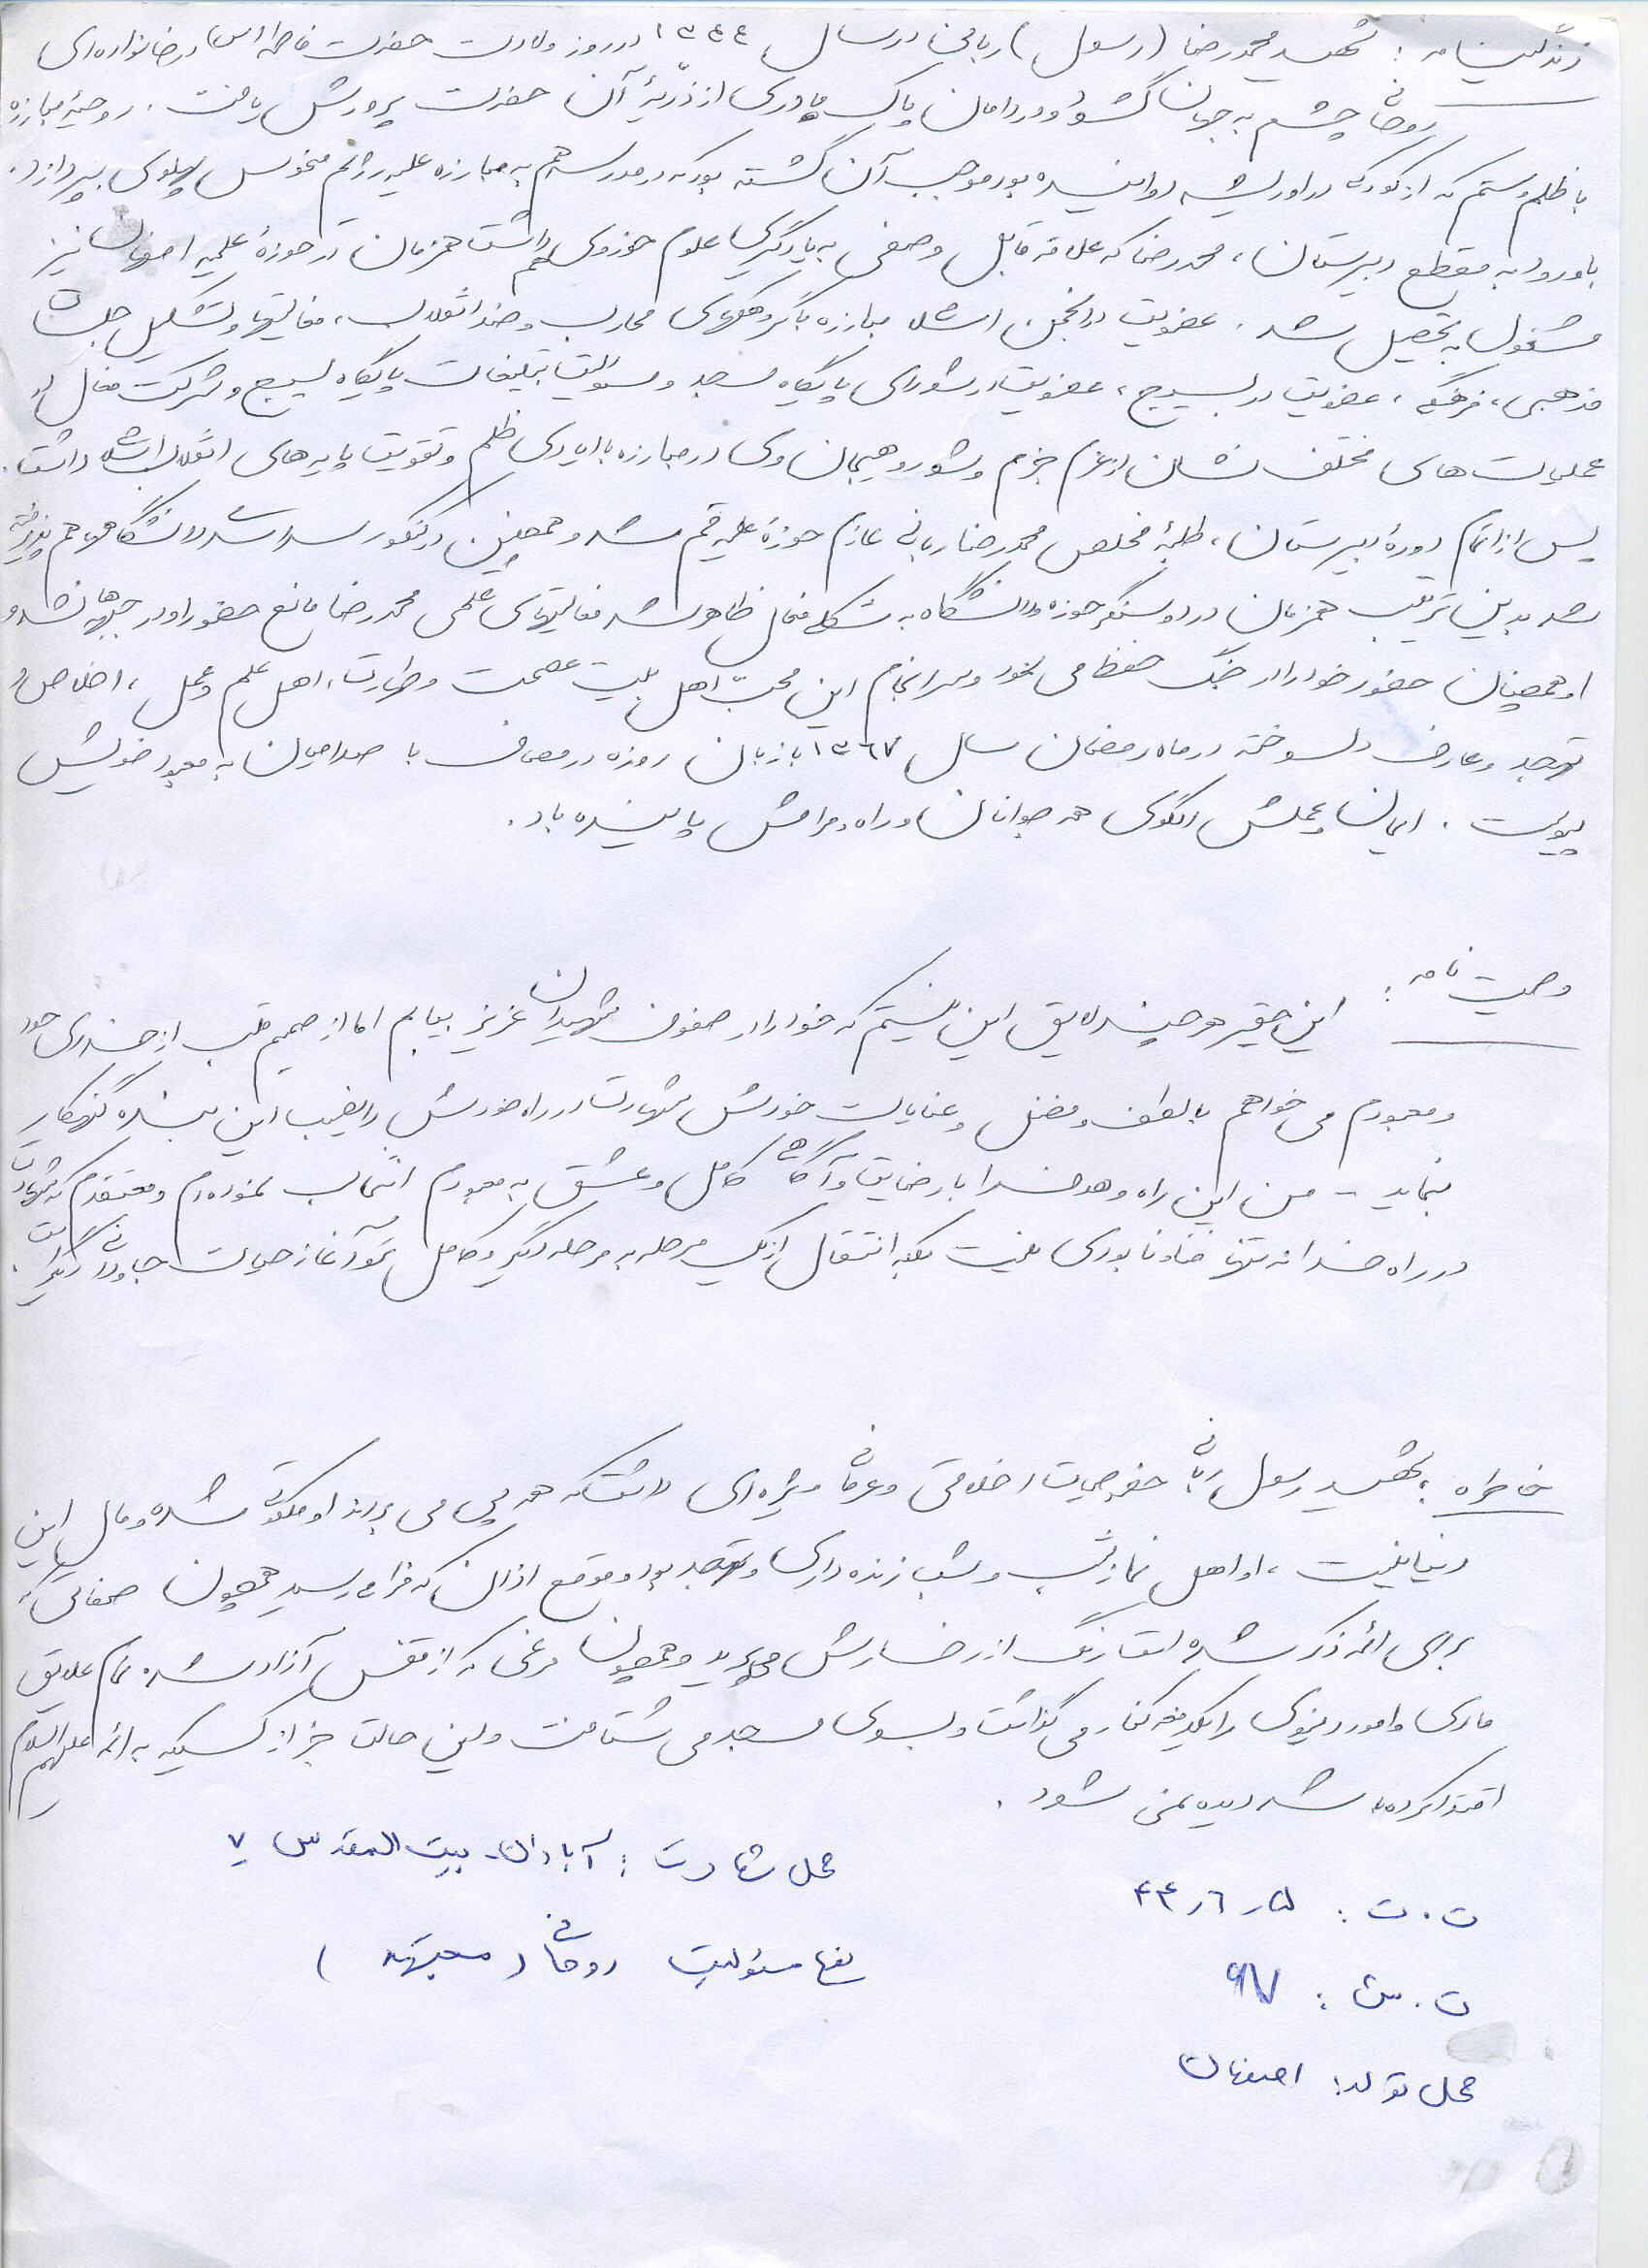 زندگینامه : شهید محمدرضا (رسول) ربانی در سال ۱۳۴۴ در روز ولادت حضرت فاطمه (س) در خانواده‌ای
روحانی چشم به جهان گشود و در دامان پاک مادری از ذریهٔ آن حضرت پرورش یافت . روحیهٔ مبارزه
با ظلم و ستم که از کودکی در او ریشه دوانیده بود موجب آن گشته بود که در مدرسه هم به مبارزه علیه رژیم منحوس پهلوی بپردازد.
با ورود به مقطع دبیرستان ، محمدرضا که علاقه قابل وصفی به یادگیری علوم حوزوی هم داشت همزمان در حوزهٔ علمیه اصفهان نیز
مشغول به تحصیل شد . عضویت در انجمن اسلامی مبارزه با گروهکهای محارب و ضد انقلاب ، فعالیتها و تشکیل جلسات
مذهبی ، فرهنگی ، عضویت در بسیج ، عضویت در شورای پایگاه مسجد و مسوولیت تبلیغات پایگاه بسیج و شرکت فعال در
عملیات های مختلف نشان از عزم جزم و شور و هیجان وی در مبارزه با ایادی ظلم و تقویت پایه های انقلاب اسلامی داشت .
پس از اتمام دورهٔ دبیرستان ، طلبهٔ مخلص محمدرضا ربانی عازم حوزهٔ علمیه قم شد و همچنین در کنکور سراسری دانشگاهها هم پذیرفته
شد بدین ترتیب همزمان در دو سنگر حوزه و دانشگاه به شکلی فعال ظاهر شد فعالیتهای علمی محمدرضا مانع حضور او در جبهه‌ها نشد و
او همچنان حضور خود را در جنگ حفظ می نمود و سرانجام این محب اهل بیت عصمت و طهارت ، اهل علم و عمل ، اخلاص و
تهجد و عارف دلسوخته در ماه رمضان سال ۱۳۶۷ با زبان روزه در مصاف با صدامیان به معبود خویش
پیوست . ایمان و عملش الگوی همه جوانان و راه و مرامش پاینده باد .
وصیت نامه :
این حقیر هر چند لایق این نیستم که خود را در صفوف شهیدان عزیز بیابم اما از صمیم قلب از خدای خود
و معبودم می خواهم با لطف و فضل و عنایات خودش شهادت در راه خودش را نصیب این بنده گنهکار
بنماید - من این راه و هدف را با رضایت و آگاهی کامل و عشق به معبودم انتخاب نموده‌ام و معتقدم که شهادت
در راه خدا نه تنها فنا و نابودی نیست بلکه انتقال از یک مرحله به مرحله دیگر و کامل تر و آغاز حیات جاودانی دیگر است .
خاطره : شهید رسول ربانی خصوصیات اخلاقی و عرفانی ویژه‌ای داشت که همه می دانند او ملکوتی شده و مال این
دنیا نیست ، او اهل نماز شب و شب زنده داری و تهجد بود و موقع اذان که فرا می رسید همچون صفاتی که
برای ائمه ذکر شده است رنگ از رخسارش می پرید و همچون مرغی که از قفس آزاد شده تمام علایق
مادی و امور دنیوی را یکدفعه کنار می گذاشت و بسوی مسجد می شتافت و این حالت جز از کسیکه به ائمه علیهم السلام
اقتدا کرده باشد دیده نمی شود .
محل شهادت : آبادان - بیت المقدس ۷
ت . ت : ۴۴٫۶٫۵
مسئولیت روحانی ( )
ت . ش : ۶۷
محل تولد : اصفهان